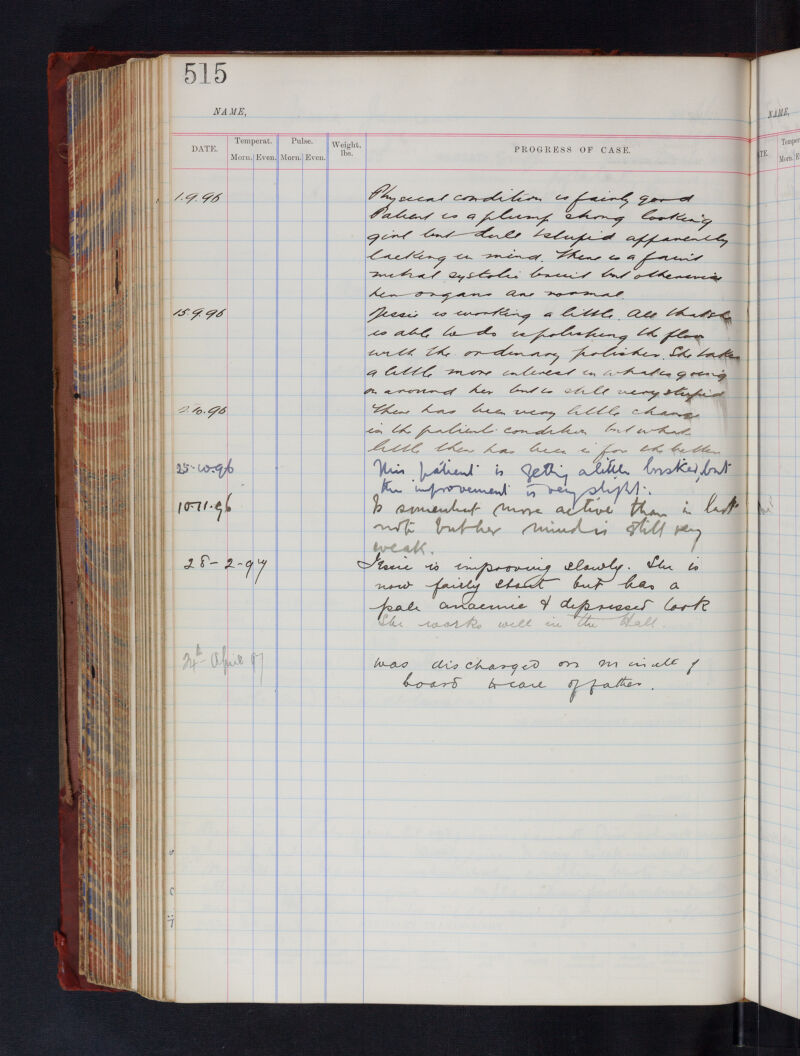 515
NAME,
DATE. Temperat. Pulse. Weight, lbs. PROGRESS OF CASE.
Morn. Even. Morn. Even.
1.9.96 Physical condition is fairly good
Patient is a plump strong looking
girl but dull & stupid apparently
lacking in mind. There is a faint
mitral systolic bruit but otherwise
her organs are normal
15.9.96 Jessie is working a little. All that she
is able to do is polishing the floor
with the ordinary polisher. She takes
a little more interest in what is going
on around her but is still very stupid
2.10.96 There has been very little change
in the patients condition but what
little there has been is for the better
25.10.96 This patient is getting a little brisker, but
the improvement is very slight.
10.11.96 Is somewhat more active than in last
note but her mind is still very
weak.
28-2-97 Jessie is improoving slowly. She is
now fairly stout but has a
pale anaemic & depressed look
She works well in the Hall.
24th April 97 was discharged on minute of
board to care of father.
NAME,
ATE. Temper
Morn. E